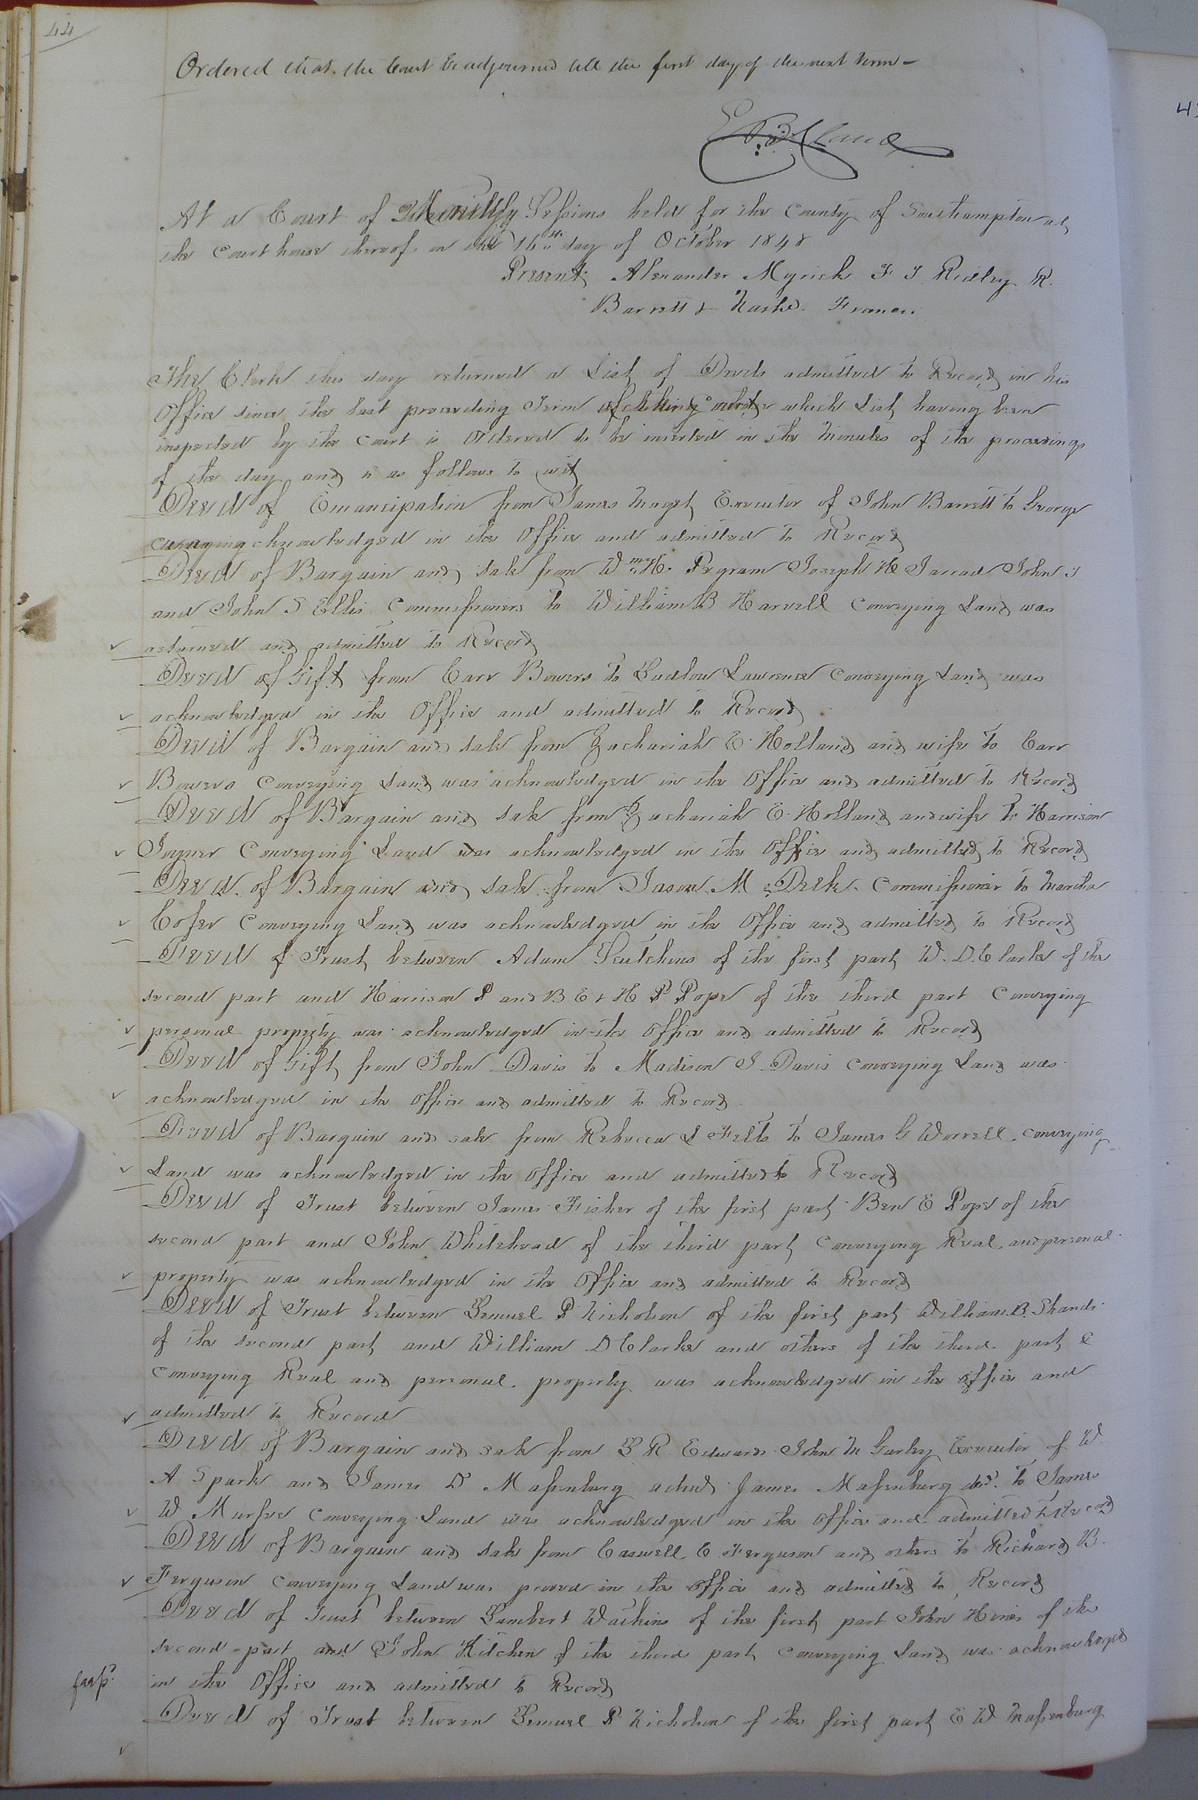 44
Ordered that the Court be adjourned till the first day of the next term -
At a Court of Monthly Sessions held for the County of Southampton at
the Court house thereof on the 16th day of October 1848
Present Alexander Myrick F J Ridley R.
Barrett &
The Clerk this day returned a List of Deeds admitted to Record in his
Office since the last preceeding Term which List having been
inspected by the Court is ordered to be inserted in the minutes of the proceedings
of the day and is as follows to wit
Deed of Emancipation from James Maget Executor of John Barrett to George
acknowledged in the Office and admitted to Record
Deed of Bargain and Sale from Wm. H. Pegram Joseph H Jarrad John J
and John S Ellis Commissioners to William B Harvell Conveying Land was
returned and admitted to Record
Deed of Gift from Carr Bowers to Ludlow Lawrence Conveying Land was
acknowledged in the Office and admitted to Record
Deed of Bargain and Sale from Zachariah E. Holland and wife to Carr
Bowers Conveying Land was acknowledged in the Office and admitted to Record
Deed of Bargain and Sale from Zachariah E. Holland and wife to Harrison
Joyner Conveying Land was acknowledged in the Office and admitted to Record
Deed of Bargain and Sale from Jason M Commissioner to Martha
Cofer Conveying Land was acknowledged in the Office and admitted to Record
Deed of Trust between Adam Scutchins of the first part W. D. Clarke of the
second part and Harrison P and B E & H P Pope of the third part Conveying
personal property was acknowledged in the Office and admitted to Record
Deed of Gift from John Davis to Madison J Davis Conveying Land was
acknowledged in the Office and admitted to Record
Deed of Bargain and sale from Rebecca L Felts to James G Worrell conveying
Land was acknowledged in the Office and admitted to Record
Deed of Trust between James Fisher of the first part Ben E Pope of the
second part and John Whitehead of the third part Conveying Real and personal
property was acknowledged in the Office and admitted to Record
Deed of Trust between Lemuel P Nicholson of the first part William B. Shands
of the second part and William D Clarke and others of the third part &
Conveying Real and personal property was acknowledged in the Office and
admitted to Record
Deed of Bargain and sale from L R Edwards John M Gurley Executor of W
A Spark and James D Massenburg James Massenburg decd. to James
W Murfee Conveying Land was acknowledged in the Office and admitted to Record
Deed of Bargain and Sale from Caswell C Ferguson and others to Richard B.
Ferguson Conveying Land was proved in the Office and admitted to Record
Deed of Trust between Lambert Watkins of the first part John Hines of the
second part and John Kitchen of the third part Conveying Land was acknowledged
in the Office and admitted to Record
Deed of Trust between Lemuel P Nicholson of the first part E W Massenburg